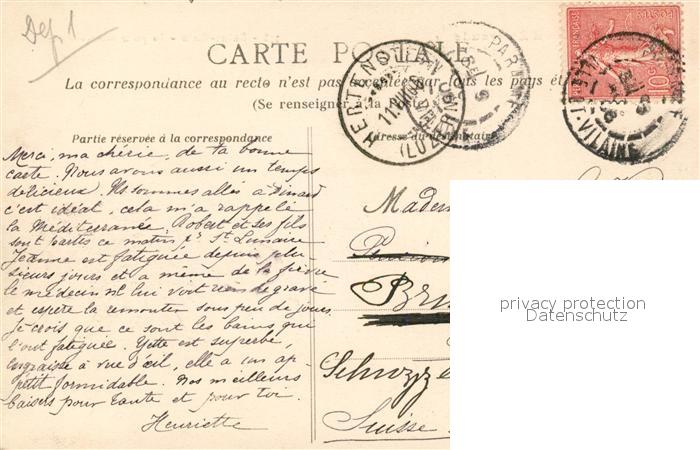 Dep 1
CARTE POSTALE
La correspondance au recto n'est pas acceptée par tous les pays étrangers
(Se renseigner à la Poste)
Partie réservée à la correspondance
Adresse du destinataire
HERTENSTEIN
(LUZERN)
PARAMÉ
ET-VILAINE
POSTES
10
Merci, ma chérie, de ta bonne
carte. Nous avons aussi un temps
délicieux. Ils sommes allés à Dinard
c'est idéal, cela m'a rappelé
la Méditerranée. Robert et ses fils
sont partis ce matin pr St Lunaire
Jeanne est fatiguée depuis plu-
sieurs jours et a même de la fièvre
le médecin ne lui voit rien de grave
et espère la remonter sous peu de jours.
Je crois que ce sont les bains qui
l'ont fatiguée. Yette est superbe,
engraisse à vue d'œil, elle a un ap-
pétit formidable. Nos meilleurs
baisers pour tante et pour toi.
Henriette
Madem
Pension
Bru
Schwyz
Suisse
privacy protection
Datenschutz